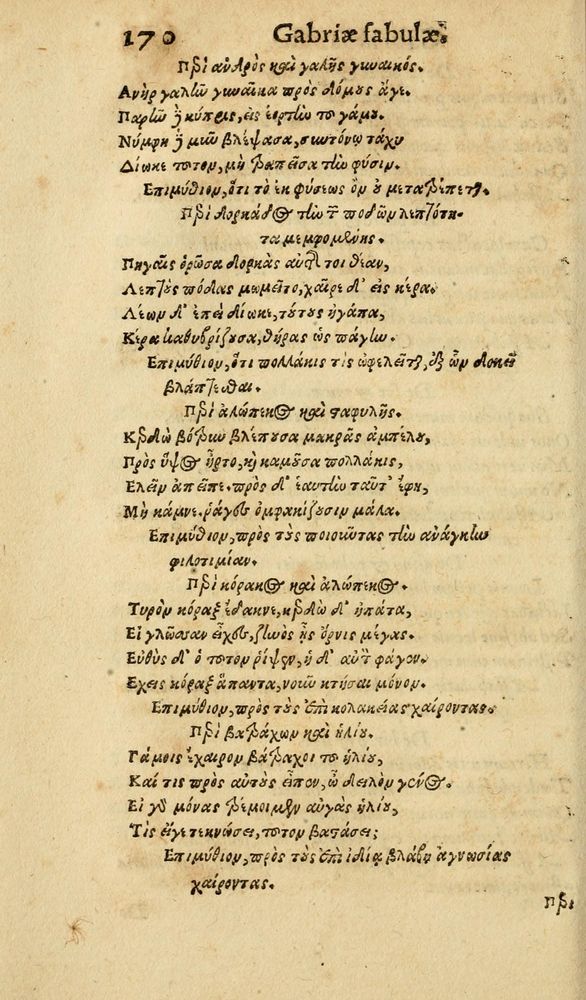 170 Gabriæ fabulæ.
Περὶ ἀνδρὸς καὶ γαλῆς γυναικός.
Ανὴρ γαλῶ γυναῖκα πρὸς δόμους ἄγε.
Παρῶ ἡ κύπρις, εἰς ἑορτὴν τοῦ γάμου.
Νύμφη ἡ μῦν βλέψασα, συντόνῳ τάχει
Δίωκε τοῦτον, μὴ τραπεῖσα τὴν φύσιν.
Επιμύθιον, ὅτι τὸ ἐκ φύσεως ὂν οὐ μετατρέπεται.
Περὶ δορκάδος τὴν τῶν ποδῶν λεπτότη-
τα μεμφομένης.
Πηγαῖς ὁρῶσα δορκὰς αὐτῆς τοι θέαν,
Λεπτοὺς πόδας μωμεῖτο, χαῖρε δ' εἰς κέρα.
Λέων δ' ἐπεὶ δίωκε, τούτους ἠγάπα,
Κέρα καθυβρίζουσα, θήρας ὡς πάγην.
Επιμύθιον, ὅτι πολλάκις τὶς ὠφελεῖται, ἐξ ὧν δοκεῖ
βλάπτεσθαι.
Περὶ ἀλώπεκος καὶ σταφυλῆς.
Κερδὼ βότρυν βλέπουσα μακρᾶς ἀμπέλου,
Πρὸς ὕψος ἦρτο, καὶ καμοῦσα πολλάκις,
Ελεῖν ἀπεῖπε. πρὸς δ' ἑαυτὴν ταῦτ' ἔφη,
Μὴ κάμνε. ῥάγες ὀμφακίζουσιν μάλα.
Επιμύθιον, πρὸς τοὺς ποιοῦντας τὴν ἀνάγκην
φιλοτιμίαν.
Περὶ κόρακος καὶ ἀλώπεκος.
Τυρὸν κόραξ ἔδακνε, κερδὼ δ' ἠπάτα,
Εἰ γλῶσσαν εἶχες, ζηνὸς ἦς ὄρνις μέγας.
Εὐθὺς δ' ὁ τοῦτον ῥίψεν, ἡ δ' αὐτὸν φάγεν.
Εχεις κόραξ ἅπαντα, νοῦν κτῆσαι μόνον.
Επιμύθιον, πρὸς τοὺς ἐπὶ κολακείας χαίροντας.
Περὶ βατράχων καὶ ἡλίου.
Γάμοις ἔχαιρον βάτραχοι τοῦ ἡλίου,
Καί τις πρὸς αὐτοὺς εἶπεν, ὦ δειλὸν γένος.
Εἰ γὰρ μόνας τρέμοιμεν αὐγὰς ἡλίου,
Τίς εἴγε τεκνώσει, τοῦτον βαστάσει;
Επιμύθιον, πρὸς τοὺς ἐπὶ ἰδίᾳ βλάβῃ ἀγνωσίας
χαίροντας.
Περὶ